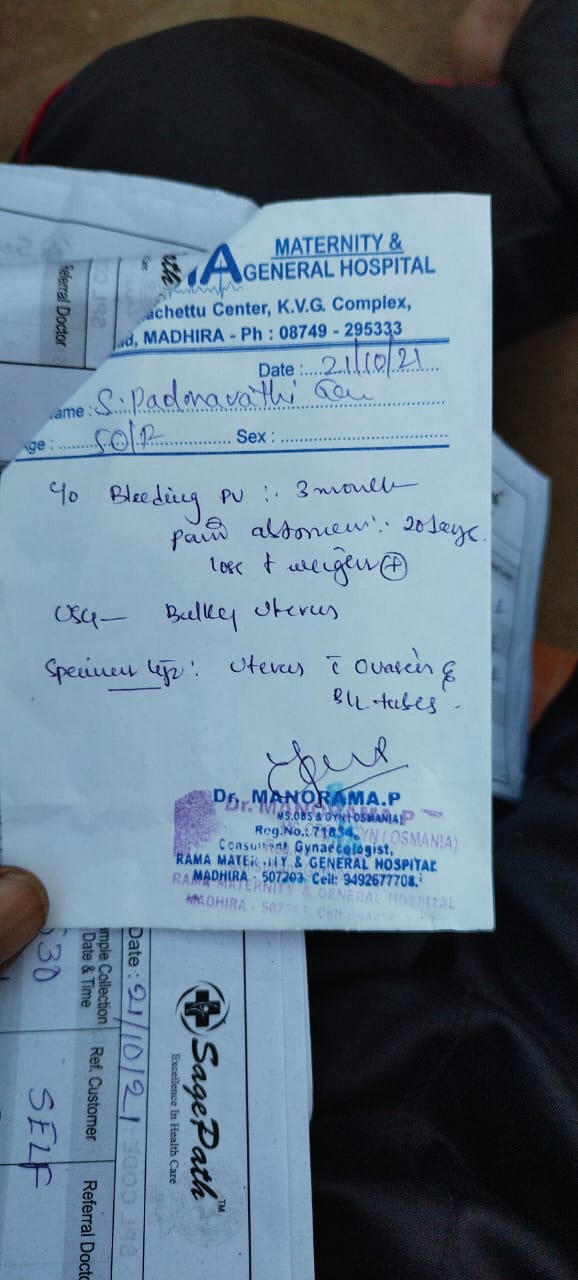 A MATERNITY &
GENERAL HOSPITAL
achettu Center, K.V.G. Complex,
ad, MADHIRA - Ph : 08749 - 295333
Date : 21/10/21
ame : S. Padmavathi
ge : 50/F Sex :
c/o Bleeding PV :. 3 month
pain abdomen :. 20 days.
loss of weight ⊕
USG - Bulky Uterus
Specimen : Uterus c̄ Ovaries &
B/L tubes.
Dr. MANORAMA.P
MS.OBS & GYN (OSMANIA)
Reg.No.: 71834
Consultant Gynaecologist,
RAMA MATERNITY & GENERAL HOSPITAL
MADHIRA - 507203. Cell: 9492677708.
Referral Doctor
Date : 21/10/21
mple Collection
Date & Time
630
Ref. Customer
SELF
Referral Docto
SagePath™
Excellence In Health Care